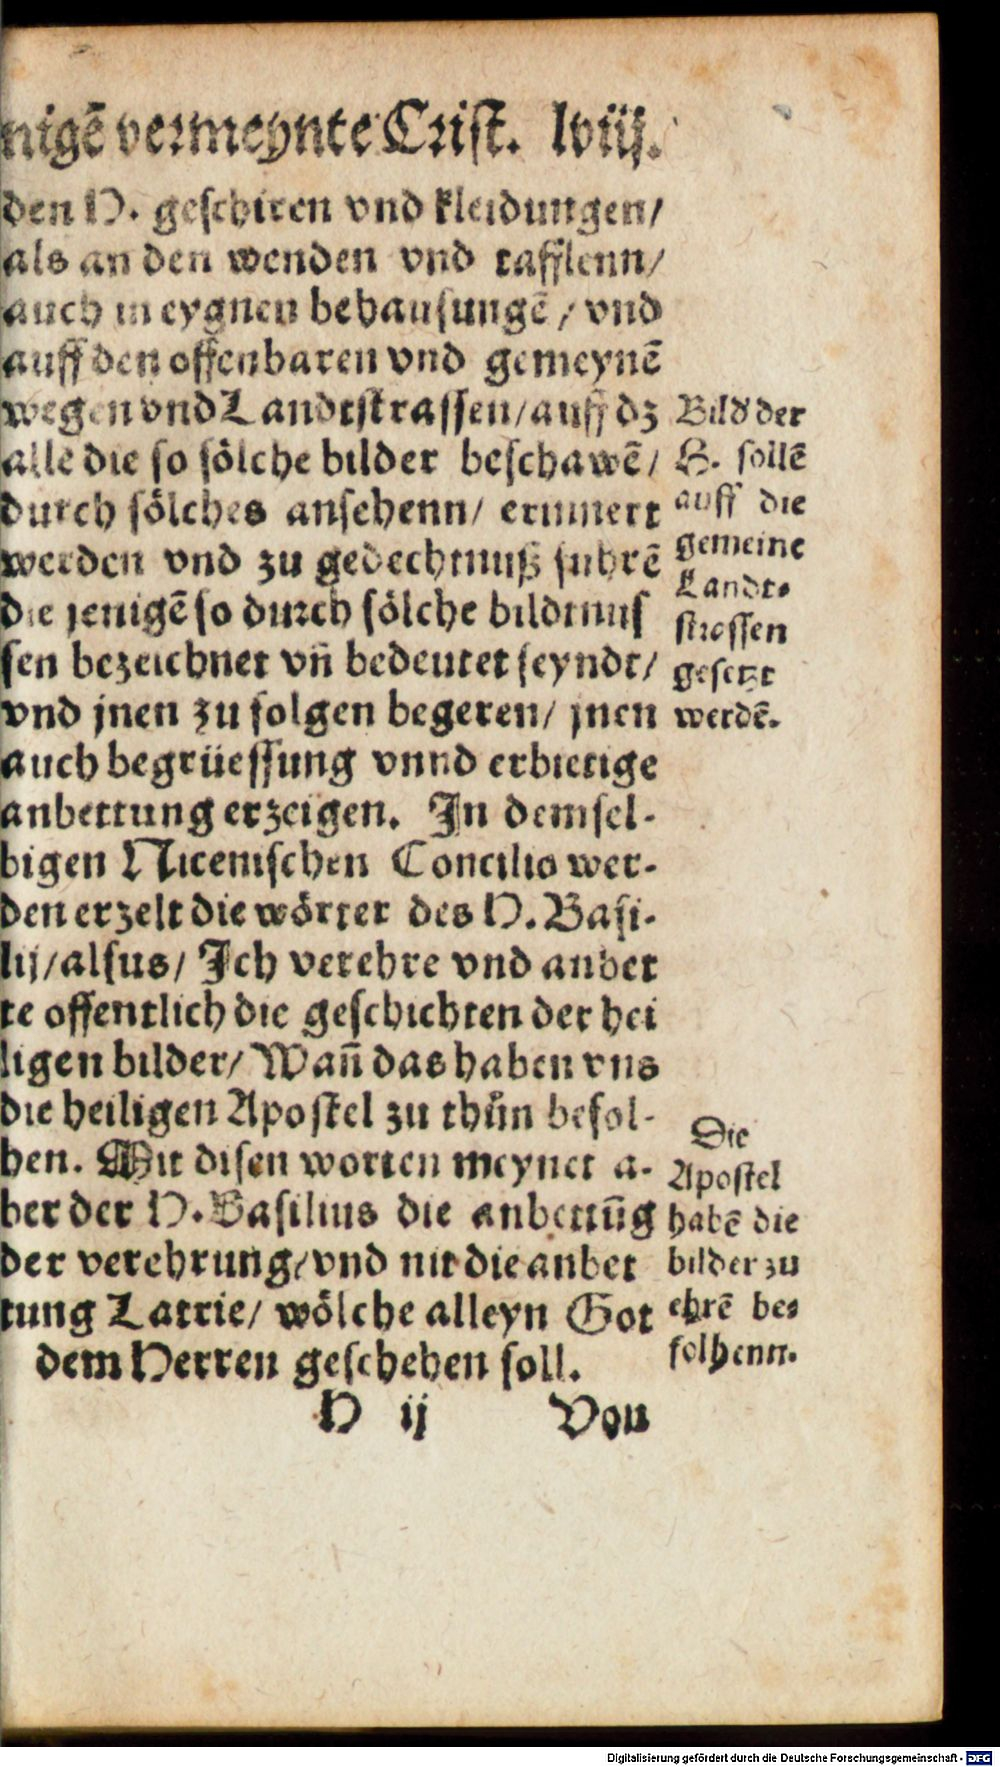 nigē vermeynte Crist. lviij.
den H. geschiren vnd kleidungen/
als an den wenden vnd tafflenn/
auch in eygnen behausungē/ vnd
auff den offenbaren vnd gemeynē
wegen vnd Landtstrassen/ auff dz
alle die so sölche bilder beschawē/
durch sölches ansehenn/ erinnert
werden vnd zu gedechtnuß fuhrē
die jenigē so durch sölche bildtnus
sen bezeichnet vñ bedeutet seyndt/
vnd jnen zu folgen begeren/ jnen
auch begrüessung vnnd erbietige
anbettung erzeigen. In demsel-
bigen Nicenischen Concilio wer-
den erzelt die wörter des H. Basi-
lij/ alsus/ Ich verehre vnd anbet
te offentlich die geschichten der hei
ligen bilder/ Wañ das haben vns
die heiligen Apostel zu thůn befol-
hen. Mit disen worten meynet a-
ber der H. Basilius die anbettūg
der verehrung/ vnd nit die anbet
tung Latrie/ wölche alleyn Got
dem Herren geschehen soll.
H ij Von
Bild der
H. sollē
auff die
gemeine
Landt-
strassen
gesetzt
werdē.
Die
Apostel
habē die
bilder zu
ehrē be-
folhenn.
Digitalisierung gefördert durch die Deutsche Forschungsgemeinschaft - DFG